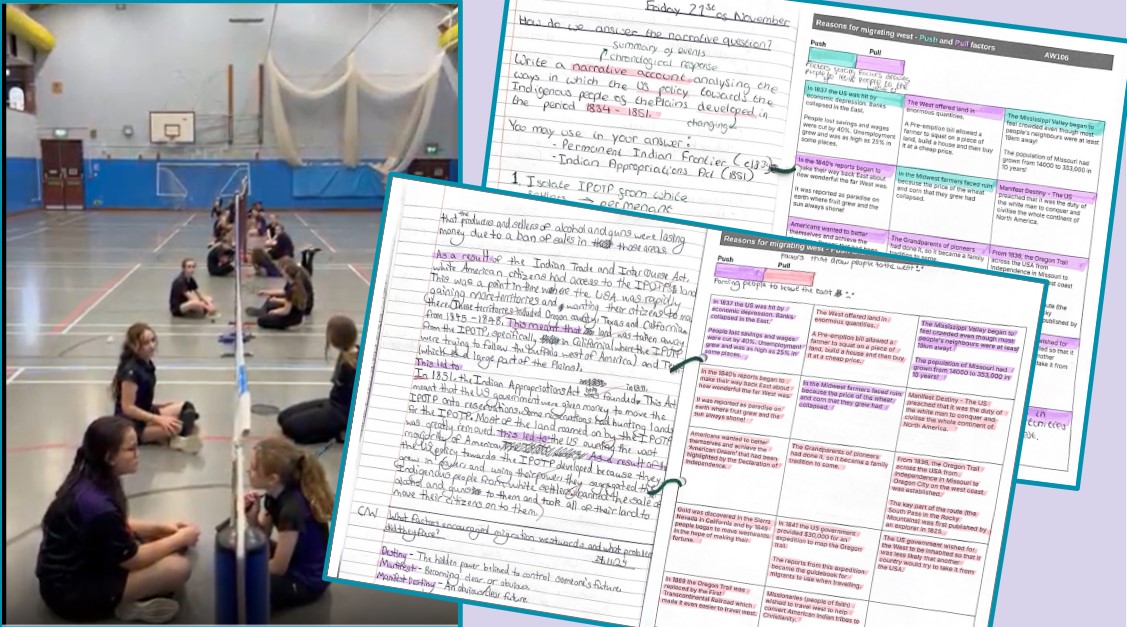 Friday 21st of November
How do we answer the narrative question?
summary of events
chronological response
Write a narrative account analysing the
ways in which the US policy towards the
Indigenous people of the Plains developed in
the period 1834 - 1851.
changing
You may use in your answer:
- Permanent Indian Frontier
- Indian Appropriations Act (1851)
1. Isolate IPOTP from white
permenant
Reasons for migrating west - Push and Pull factors
AW106
Push
Pull
In 1837 the US was hit by
economic depression. Banks
collapsed in the East.
People lost savings and wages
were cut by 40%. Unemployment
grew and was as high as 25% in
some places.
The West offered land in
enormous quantities.
A Pre-emption bill allowed a
farmer to squat on a piece of
land, build a house and then buy
it at a cheap price.
The Mississippi Valley began to
feel crowded even though most
people's neighbours were at least
19km away!
The population of Missouri had
grown from 14000 to 353,000 in
10 years!
In the 1840's reports began to
make their way back East about
how wonderful the far West was.
It was reported as paradise on
earth where fruit grew and the
sun always shone!
In the Midwest farmers faced ruin
because the price of the wheat
and corn that they grew had
collapsed.
Manifest Destiny - The US
preached that it was the duty of
the white man to conquer and
civilise the whole continent of
North America.
Americans wanted to better
themselves and achieve the
The Grandparents of pioneers
had done it, so it became a family
tradition to some.
From 1836, the Oregon Trail
across the USA from
independence in Missouri to
that producers and sellers of alcohol and guns were losing
money due to a ban of sales in those areas.
As a result of the Indian Trade and Intercourse Act,
white American citizens had access to the IPOTP's land
This was a point in time where the USA was rapidly
gaining more territories and wanting their citizens to
there. These territories included Oregon country, Texas and California
from 1845 - 1848. This meant that land was taken away
from the IPOTP, specifically in California where the IPOTP
were trying to follow the buffalo west of America) and
which a large part of the Plains).
This led to
In 1851, the Indian Appropriations Act founded. This Act
meant that the US government were given money to move the
IPOTP onto reservations. Some reservations had hunting lands
for the IPOTP. Most of the land named on by the IPOTP
was greatly remained. This led to the US owning the vast
majority of America. As a result
the US policy towards the IPOTP developed because they
grew in power and using their power they segregated the
Indigenous people from white settlers, banned the sale of
alcohol and guns to them and took all of their land to
move their citizens on to them.
C/W What factors encouraged migration westwards and what problems
did they face?
Destiny - The hidden power belived to control someone's future.
Manifest - Becoming clear or obvious
Manifest Destiny - An obvious/clear future.
Reasons for migrating west - Push
Factors that draw people to the west
Push
Pull
Forcing people to leave the east
In 1837 the US was hit by
economic depression. Banks
collapsed in the East.
People lost savings and wages
were cut by 40%. Unemployment
grew and was as high as 25% in
some places.
The West offered land in
enormous quantities.
A Pre-emption bill allowed a
farmer to squat on a piece of
land, build a house and then buy
it at a cheap price.
The Mississippi Valley began to
feel crowded even though most
people's neighbours were at least
19km away!
The population of Missouri had
grown from 14000 to 353,000 in
10 years!
In the 1840's reports began to
make their way back East about
how wonderful the far West was.
It was reported as paradise on
earth where fruit grew and the
sun always shone!
In the Midwest farmers faced ruin
because the price of the wheat
and corn that they grew had
collapsed.
Manifest Destiny - The US
preached that it was the duty of
the white man to conquer and
civilise the whole continent of
North America.
Americans wanted to better
themselves and achieve the
'American Dream' that had been
highlighted by the Declaration of
Independence.
The Grandparents of pioneers
had done it, so it became a family
tradition to some.
From 1836, the Oregon Trail
across the USA from
independence in Missouri to
Oregon City on the west coast
was established.
The key part of the route (the
South Pass in the Rocky
Mountains) was first published by
an explorer in 1825.
Gold was discovered in the Sierra
Nevada in California and by 1849
people began to move westwards
in the hope of making their
fortune.
In 1841 the US government
provided $30,000 for an
expedition to map the Oregon
trail.
The reports from this expedition
became the guidebook for
migrants to use when travelling.
The US government wished for
the West to be inhabited so that it
was less likely that another
country would try to take it from
the USA.
In 1869 the Oregon Trail was
replaced by the First
Transcontinental Railroad which
made it even easier to travel west.
Missionaries (people of faith)
wished to travel west to help
convert American Indian tribes to
Christianity.